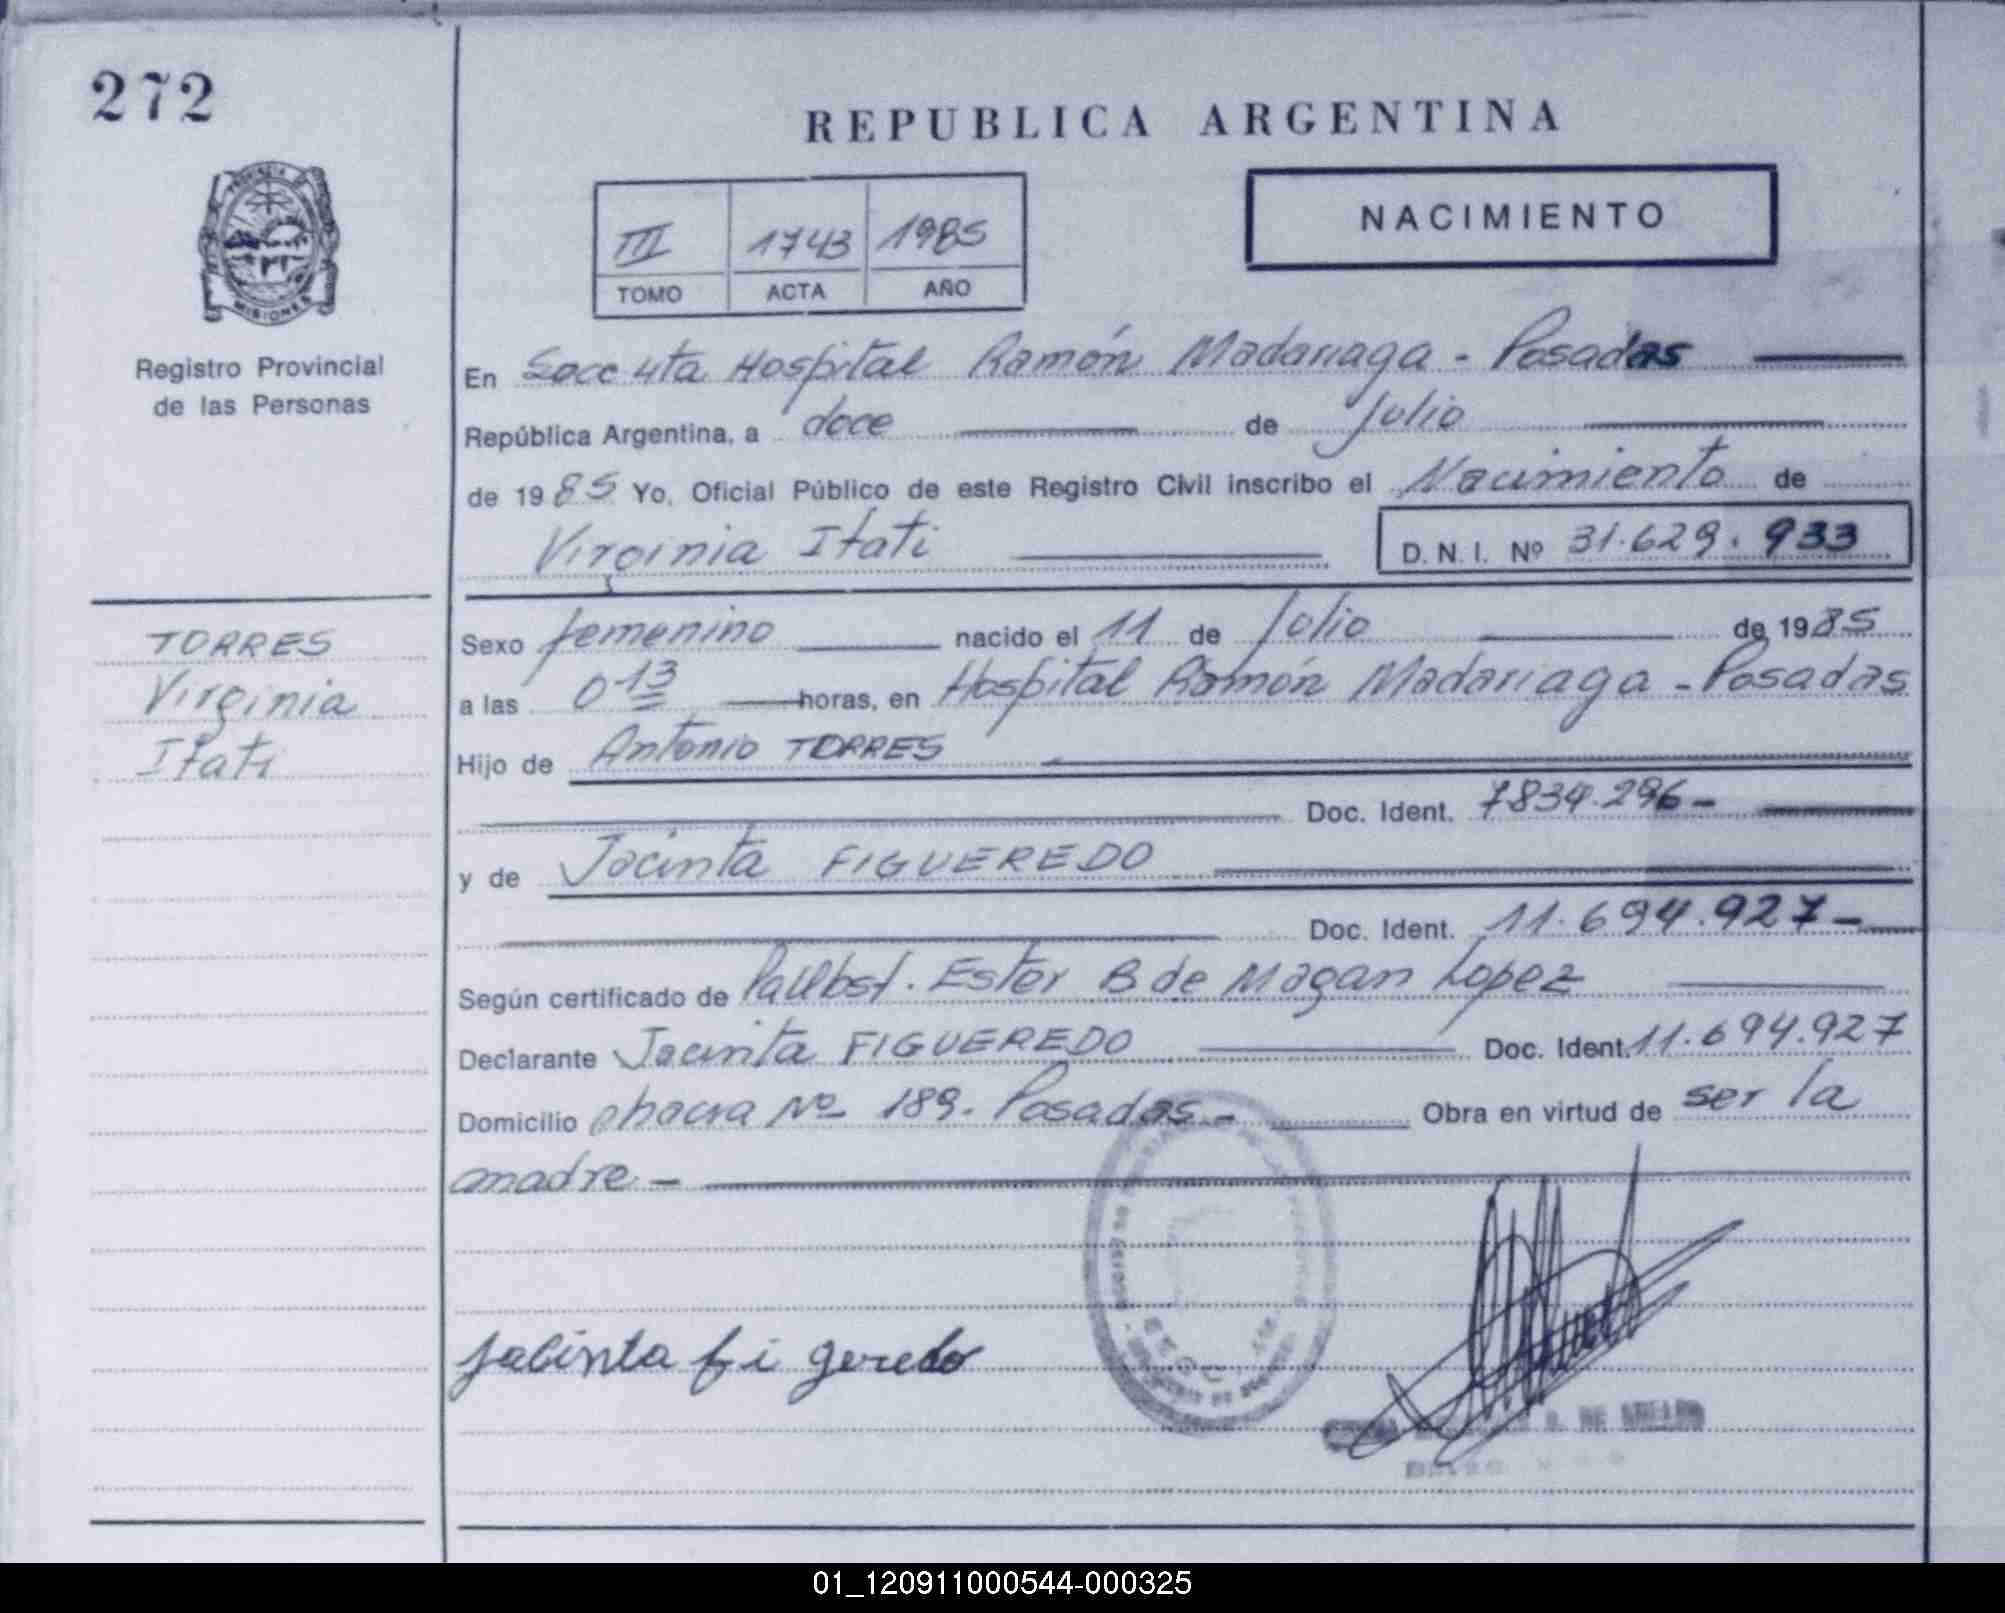 272
REPUBLICA ARGENTINA
PROVINCIA DE
MISIONES
III 1743 1985
TOMO ACTA AÑO
NACIMIENTO
Registro Provincial
de las Personas
En Secc 4ta Hospital Ramón Madariaga - Posadas
República Argentina, a doce de Julio
de 1985 Yo, Oficial Público de este Registro Civil inscribo el Nacimiento de
Virginia Itati D. N. I. Nº 31.629.933
TORRES
Virginia
Itati
Sexo femenino nacido el 11 de Julio de 1985
a las 0 13 horas, en Hospital Ramón Madariaga - Posadas
Hijo de Antonio TORRES
Doc. Ident. 7834.296-
y de Jacinta FIGUEREDO
Doc. Ident. 11.694.927-
Según certificado de Ester B de Magan Lopez
Declarante Jacinta FIGUEREDO Doc. Ident. 11.694.927
Domicilio chacra Nº 189. Posadas - Obra en virtud de ser la
madre -
Jacinta fi geredo
01_120911000544-000325